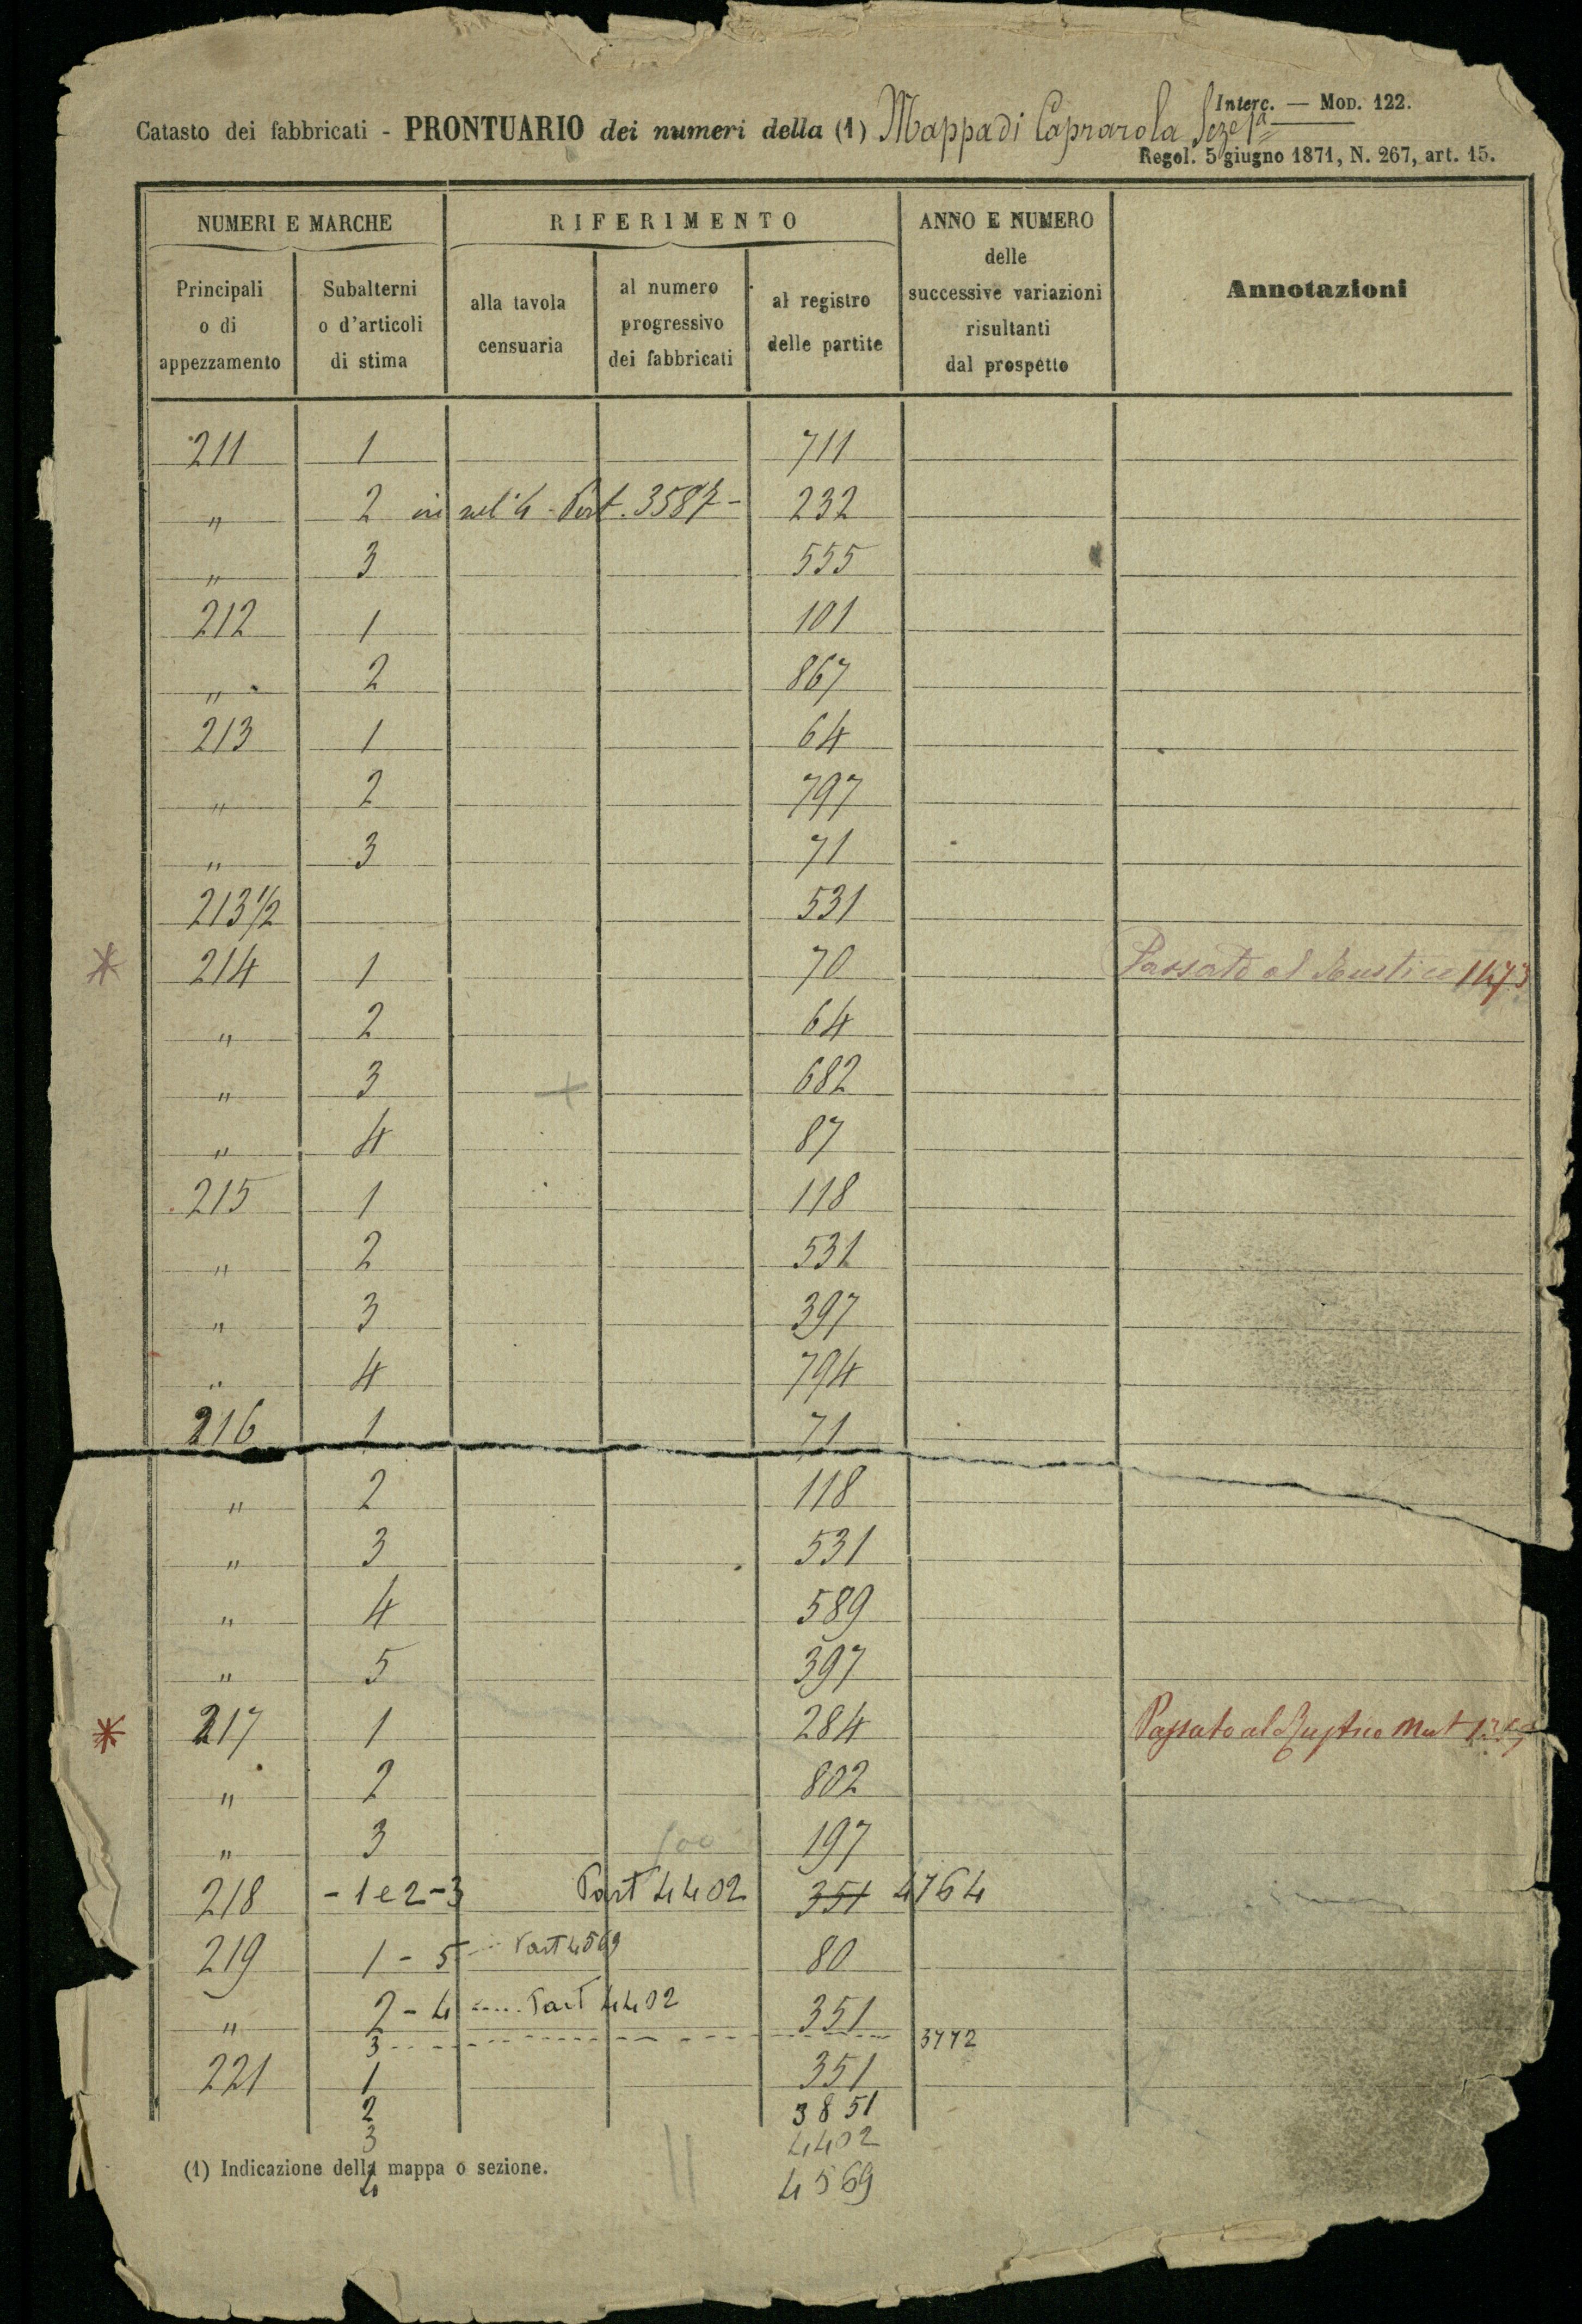 Interc. — Mod. 122.
Catasto dei fabbricati - PRONTUARIO dei numeri della (1) Mappa di Caprarola Sez. 1ª
Regol. 5 giugno 1871, N. 267, art. 15.
NUMERI E MARCHE RIFERIMENTO ANNO E NUMERO delle successive variazioni risultanti dal prospetto Annotazioni
Principali o di appezzamento Subalterni o d'articoli di stima alla tavola censuaria al numero progressivo dei fabbricati al registro delle partite
211 1 711
" 2 Part. 3587 - 232
" 3 555
212 1 101
" 2 867
213 1 64
" 2 797
" 3 71
213 1/2 531
* 214 1 70 Passato al Rustico 1173
" 2 64
" 3 682
" 4 87
215 1 118
" 2 531
" 3 397
" 4 794
216 1 71
" 2 118
" 3 531
" 4 589
" 5 397
* 217 1 284 Passato al Rustico Mut
" 2 802
" 3 197
218 - 1 e 2 - 3 Part 4402 351 4764
219 1 - 5 Part 4569 80
" 2 - 4 ..... Part 4402 351
3 3772
221 1 351
2 3851
3 4402
4 4569
(1) Indicazione della mappa o sezione.